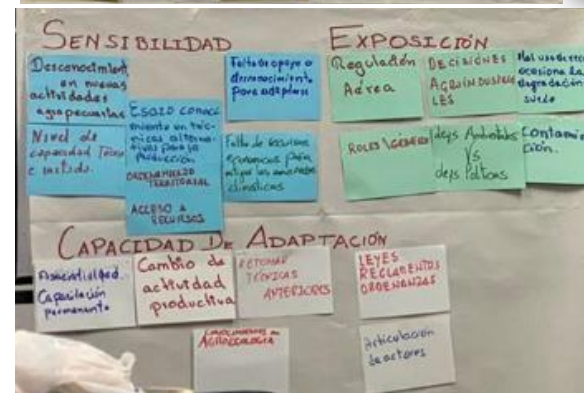 SENSIBILIDAD
Desconocimient
en nuevas
actividades
agropecuarias
Falta de apoyo o
desconocimiento
Para adaptarse
ESCAZO CONOCI
miento en téc-
nicas alterna-
tivas para la
Producción.
ORDENAMIENTO
TERRITORIAL
ACCESO A
RECURSOS
Nivel de
capacidad Técni
Falta de recursos
económicos para
mitigar los
climáticos
EXPOSICIÓN
Regulación
Aérea
DECISIONES
AGROINDUSTRIA
LES
Mal uso de
ocasiona la
degradación
suelo
ROLES \GÉNERO
leyes Ambientales
Vs
leyes Políticas
Contamina
ción.
CAPACIDAD DE ADAPTACIÓN
Asociatividad.
Capacitación
permanente
Cambio de
actividad
productiva
RETOMAR
TÉCNICAS
ANTERIORES
LEYES
REGLAMENTOS
ORDENANZAS
AGROECOLOGIA
Articulación
de actores